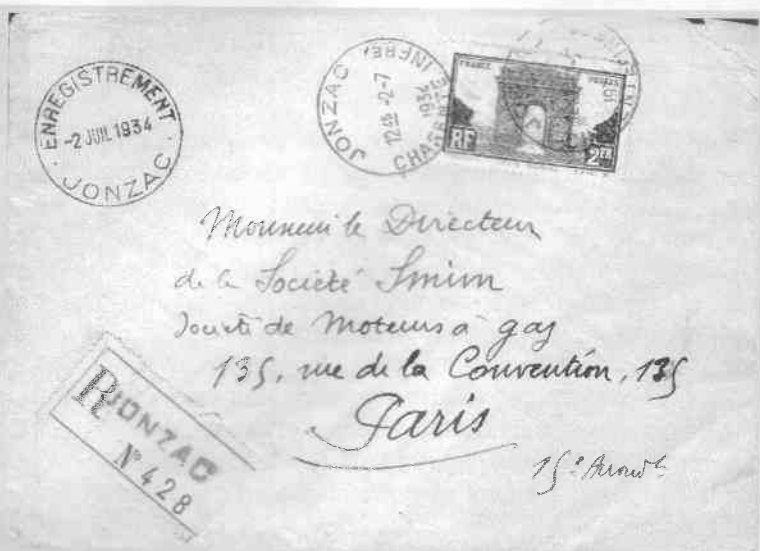 ENREGISTREMENT
-2 JUIL 1934
JONZAC
JONZAC
12 35 -2-7
1934
FRANCE
POSTES
RF
2 FR
Monsieur le Directeur
de la Société Smim
Société de Moteurs à gaz
135, rue de la Convention, 135
Paris
15e Arrondt
R JONZAC
N° 428